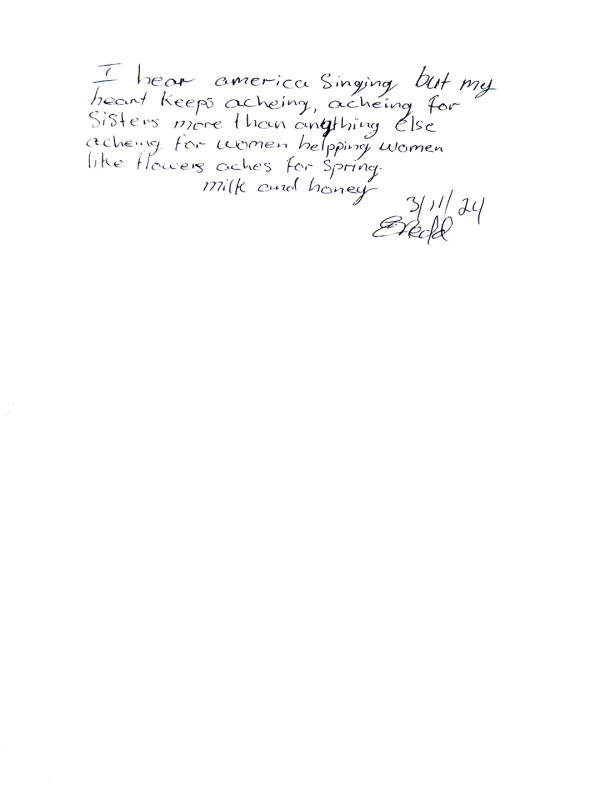 I hear america Singing but my
heart Keeps acheing, acheing for
Sisters more than anything else
acheing for women helpping women
like flowers aches for spring.
milk and honey
3/11/24